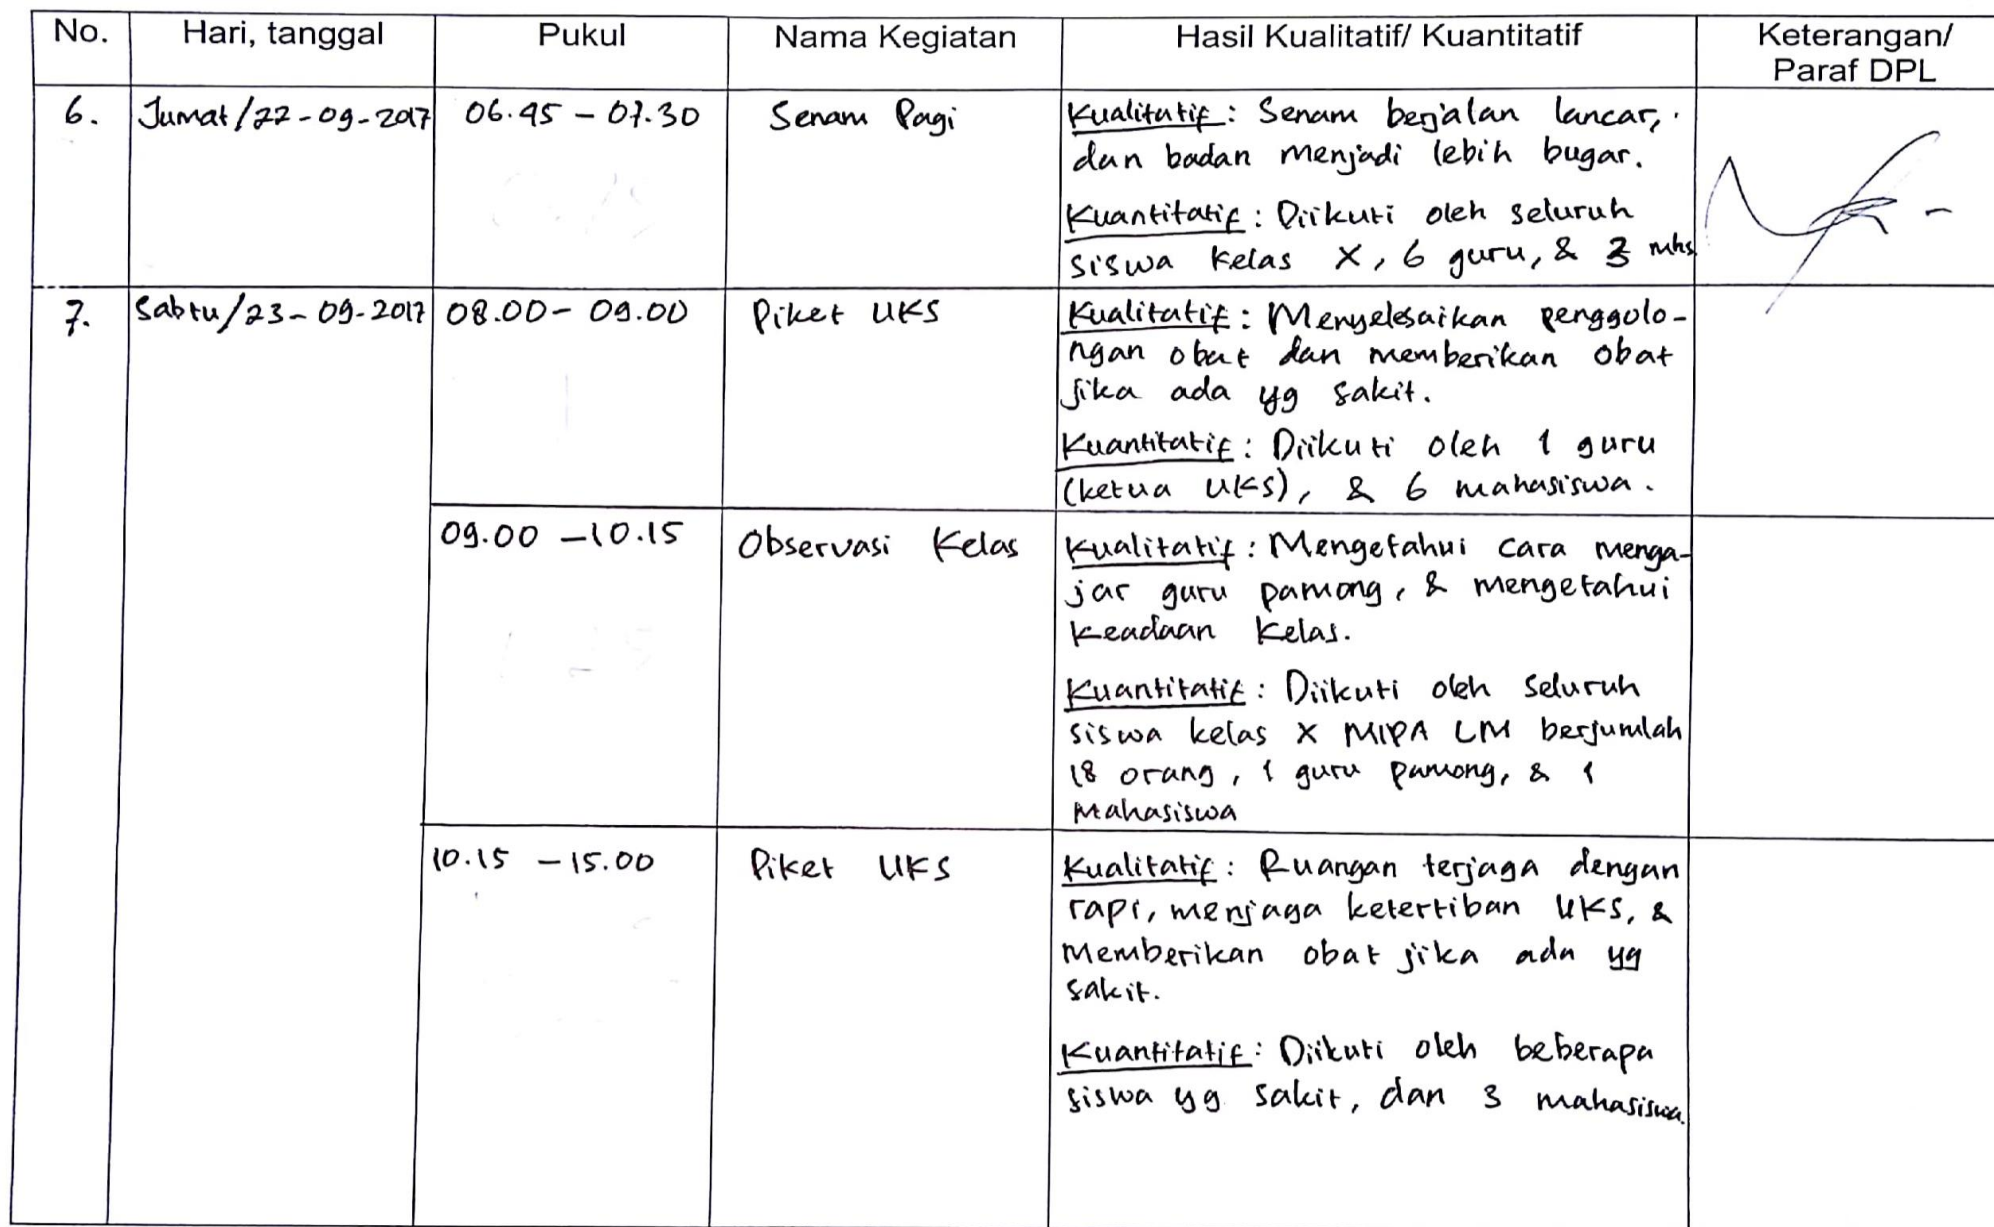 No. Hari, tanggal Pukul Nama Kegiatan Hasil Kualitatif/ Kuantitatif Keterangan/
Paraf DPL
6. Jumat/22-09-2017 06.45 - 07.30 Senam Pagi Kualitatif: Senam berjalan lancar,
dan badan menjadi lebih bugar.
Kuantitatif: Diikuti oleh seluruh
siswa kelas X, 6 guru, & 3 mhs
7. Sabtu/23-09-2017 08.00 - 09.00 Piket UKS Kualitatif: Menyelesaikan penggolo-
ngan obat dan memberikan obat
jika ada yg sakit.
Kuantitatif: Diikuti oleh 1 guru
(ketua UKS), & 6 mahasiswa.
09.00 - 10.15 Observasi Kelas Kualitatif: Mengetahui cara menga-
jar guru pamong, & mengetahui
keadaan kelas.
Kuantitatif: Diikuti oleh seluruh
siswa kelas X MIPA LM berjumlah
18 orang, 1 guru pamong, & 1
mahasiswa
10.15 - 15.00 Piket UKS Kualitatif: Ruangan terjaga dengan
rapi, menjaga ketertiban UKS, &
memberikan obat jika ada yg
sakit.
Kuantitatif: Diikuti oleh beberapa
siswa yg sakit, dan 3 mahasiswa.